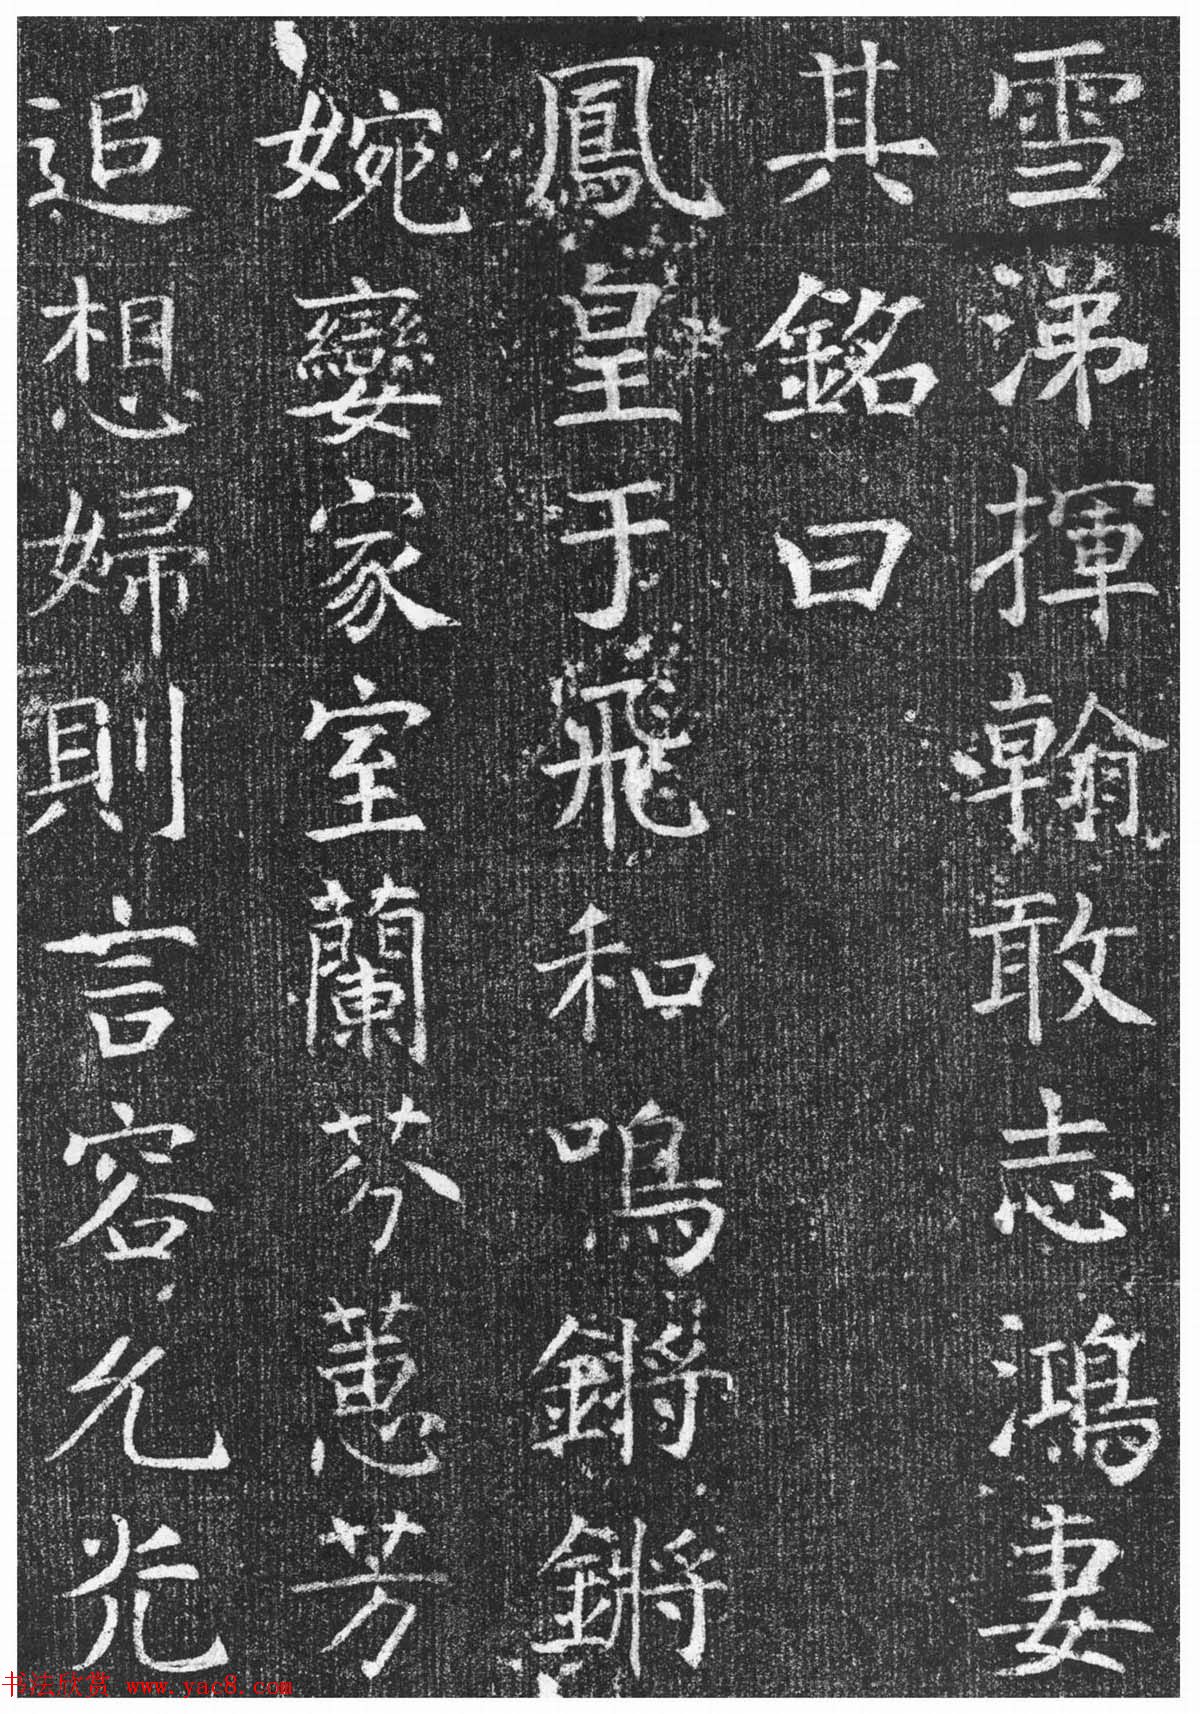 雪涕揮翰敢志鴻妻
其銘曰
鳳皇于飛和鳴鏘鏘
婉孌家室蘭芬蕙芳
追想婦則言容允光
书法欣赏 www.yac8.com